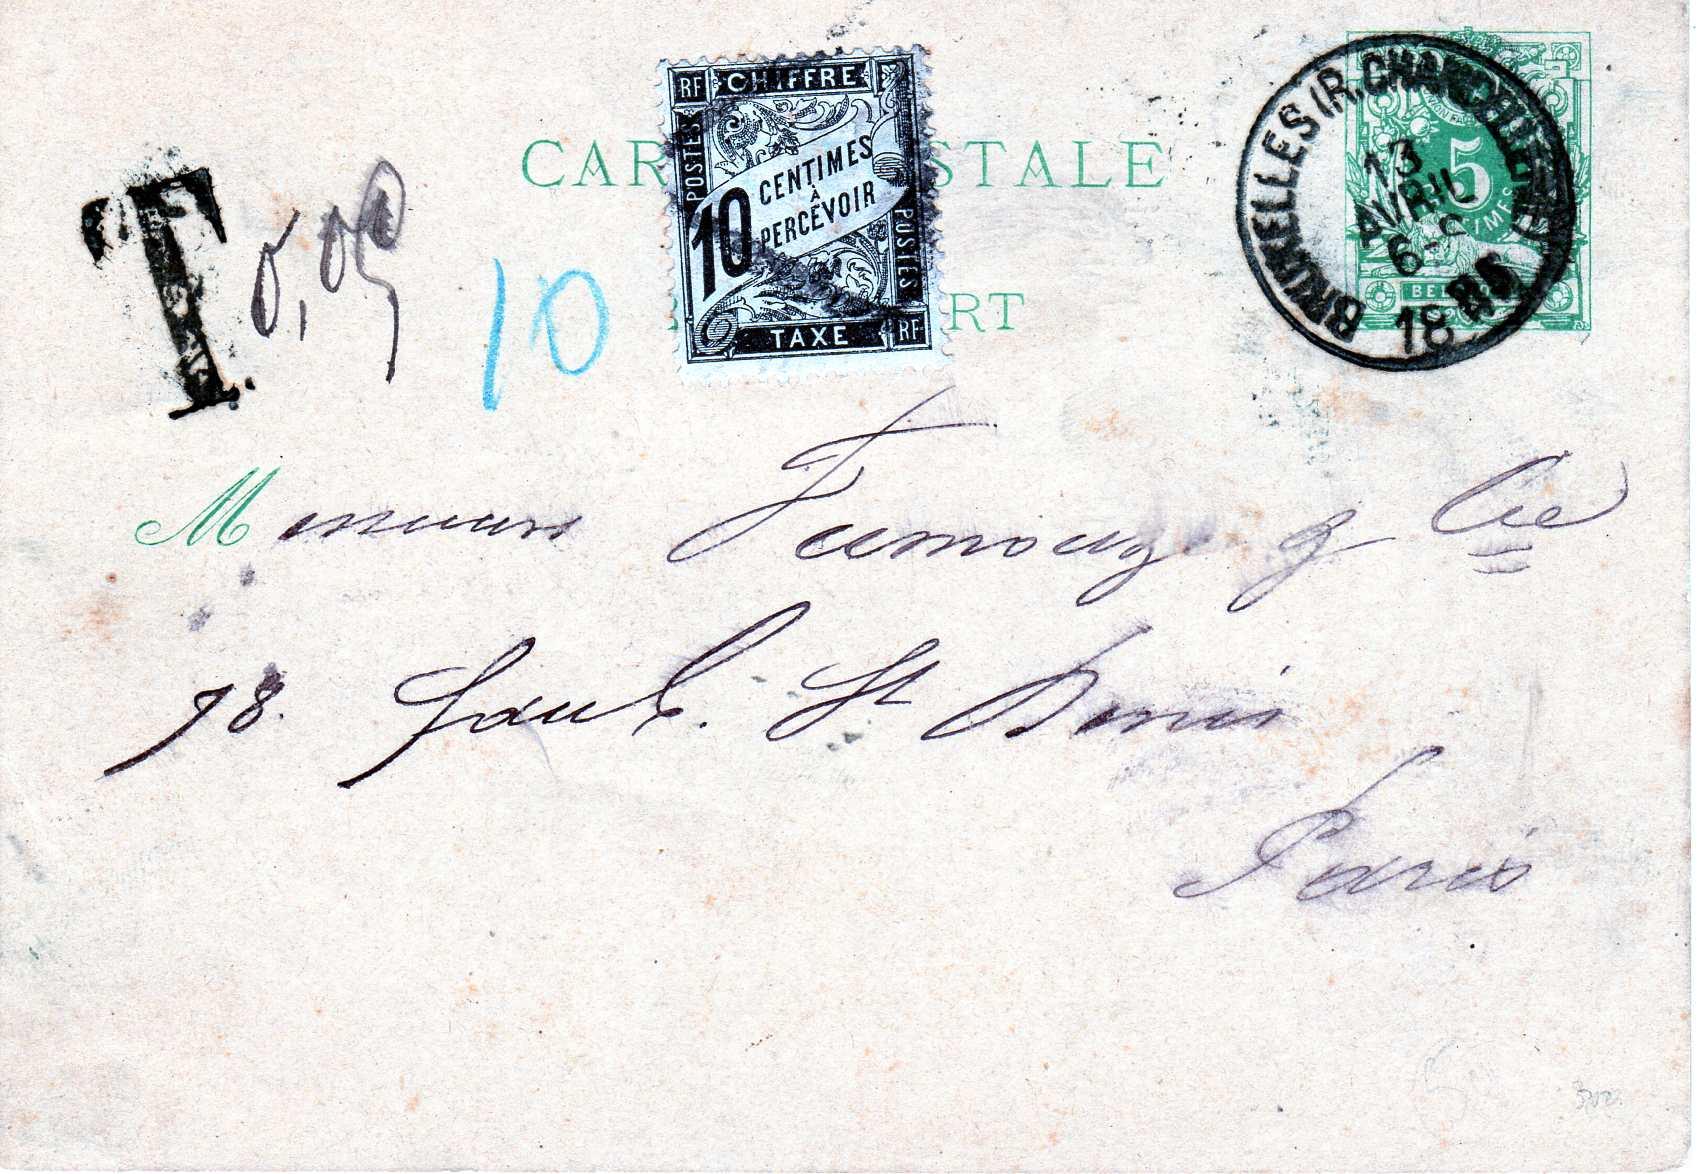 CARTE POSTALE
RF CHIFFRE
POSTES
10 CENTIMES
À
PERCEVOIR
POSTES
TAXE RF
BRUXELLES (R. CHANCELLERIE)
13
AVRIL
6-S
18
5
T
0,05
10
Messieurs Fumouze & Cie
78. Faub. St Denis
Paris